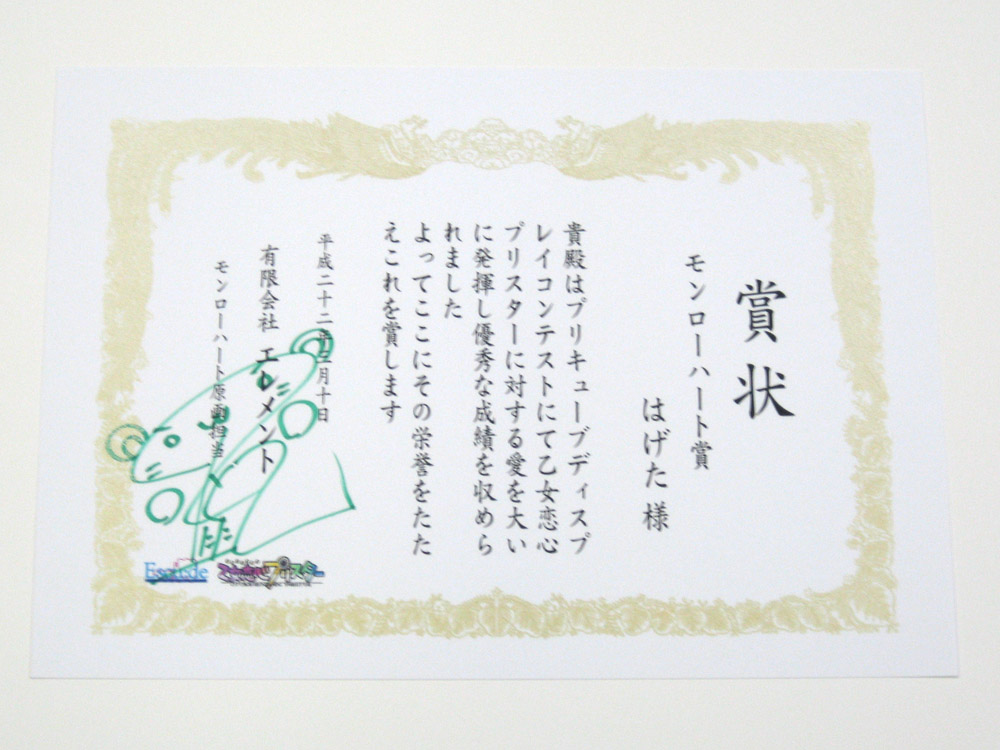 賞状
モンローハート賞
はげた 様
貴殿はプリキューブディスプ
レイコンテストにて乙女恋心
プリスターに対する愛を大い
に発揮し優秀な成績を収めら
れました
よってここにその栄誉をたた
えこれを賞します
平成二十二年三月十日
有限会社 エレメント
モンローハート原画担当
Escu:de